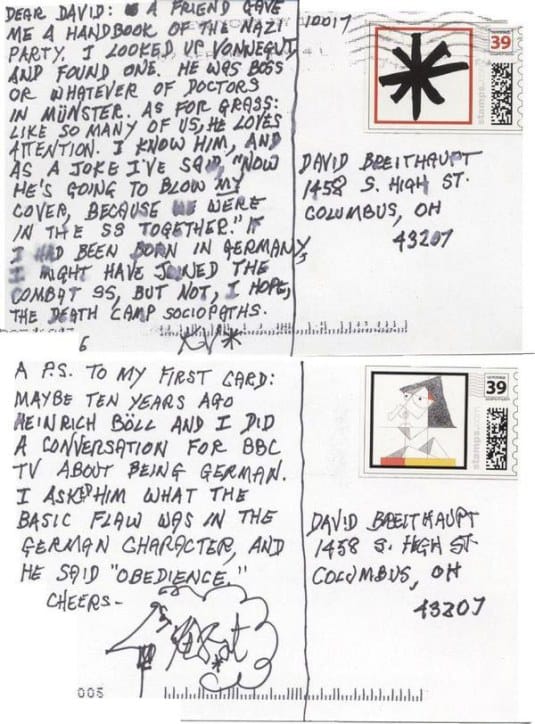 DEAR DAVID: A FRIEND GAVE
ME A HANDBOOK OF THE NAZI
PARTY. I LOOKED UP VONNEGUT,
AND FOUND ONE. HE WAS BOSS
OR WHATEVER OF DOCTORS
IN MÜNSTER. AS FOR GRASS:
LIKE SO MANY OF US, HE LOVES
ATTENTION. I KNOW HIM, AND
AS A JOKE I'VE SAID, "NOW
HE'S GOING TO BLOW MY
COVER, BECAUSE WE WERE
IN THE SS TOGETHER." IF
I HAD BEEN BORN IN GERMANY,
I MIGHT HAVE JOINED THE
COMBAT SS, BUT NOT, I HOPE,
THE DEATH CAMP SOCIOPATHS.
KV*
10017
39
stamps.com
DAVID BREITHAUPT
1458 S. HIGH ST.
COLUMBUS, OH
43207
6
A P.S. TO MY FIRST CARD:
MAYBE TEN YEARS AGO
HEINRICH BÖLL AND I DID
A CONVERSATION FOR BBC
TV ABOUT BEING GERMAN.
I ASKED HIM WHAT THE
BASIC FLAW WAS IN THE
GERMAN CHARACTER, AND
HE SAID "OBEDIENCE."
CHEERS-
005
39
stamps.com
DAVID BREITHAUPT
1458 S. HIGH ST
COLUMBUS, OH
43207